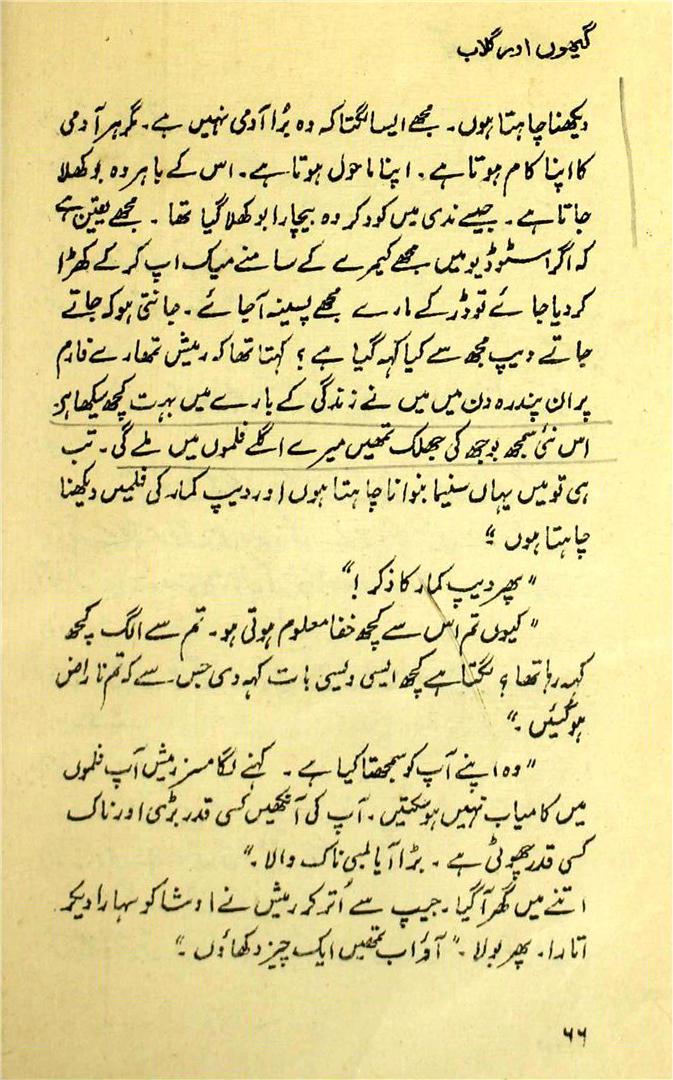 گیہوں اور گلاب
دیکھنا چاہتا ہوں۔ مجھے ایسا لگتا کہ وہ بُرا آدمی نہیں ہے۔ مگر ہر آدمی
کا اپنا کام ہوتا ہے۔ اپنا ماحول ہوتا ہے۔ اس کے باہر وہ بوکھلا
جاتا ہے۔ جیسے ندی میں کود کر وہ بیچارا بوکھلا گیا تھا۔ مجھے یقین ہے
کہ اگر اسٹوڈیو میں مجھے کیمرے کے سامنے میک اپ کر کے کھڑا
کر دیا جائے تو ڈر کے مارے مجھے پسینہ آجائے۔ جانتی ہو کہ جاتے
جاتے دیپ مجھ سے کیا کہہ گیا ہے؟ کہتا تھا کہ رمیش تمھارے فارم
پر ان پندرہ دن میں میں نے زندگی کے بارے میں بہت کچھ سیکھا ہے
اس نئی سمجھ بوجھ کی جھلک تمھیں میرے اگلے فلموں میں ملے گی۔ تب
ہی تو میں یہاں سنیما بنوانا چاہتا ہوں اور دیپ کمار کی فلمیں دیکھنا
چاہتا ہوں ‘‘
’’پھر دیپ کمار کا ذکر!‘‘
’’کیوں تم اس سے کچھ خفا معلوم ہوتی ہو۔ تم سے الگ کچھ
کہہ رہا تھا؟ لگتا ہے کچھ ایسی ویسی بات کہہ دی جس سے کہ تم ناراض
ہو گئیں۔‘‘
’’وہ اپنے آپ کو سمجھتا کیا ہے۔ کہنے لگا مسز رمیش آپ فلموں
میں کامیاب نہیں ہو سکتیں۔ آپ کی آنکھیں کسی قدر بڑی اور ناک
کسی قدر چھوٹی ہے۔ بڑا آیا لمبی ناک والا۔‘‘
اتنے میں گھر آگیا۔ جیپ سے اُتر کر رمیش نے اوشا کو سہارا دیکر
اتارا۔ پھر بولا۔ ’’آؤ اب تمھیں ایک چیز دکھاؤں۔‘‘
۶۶